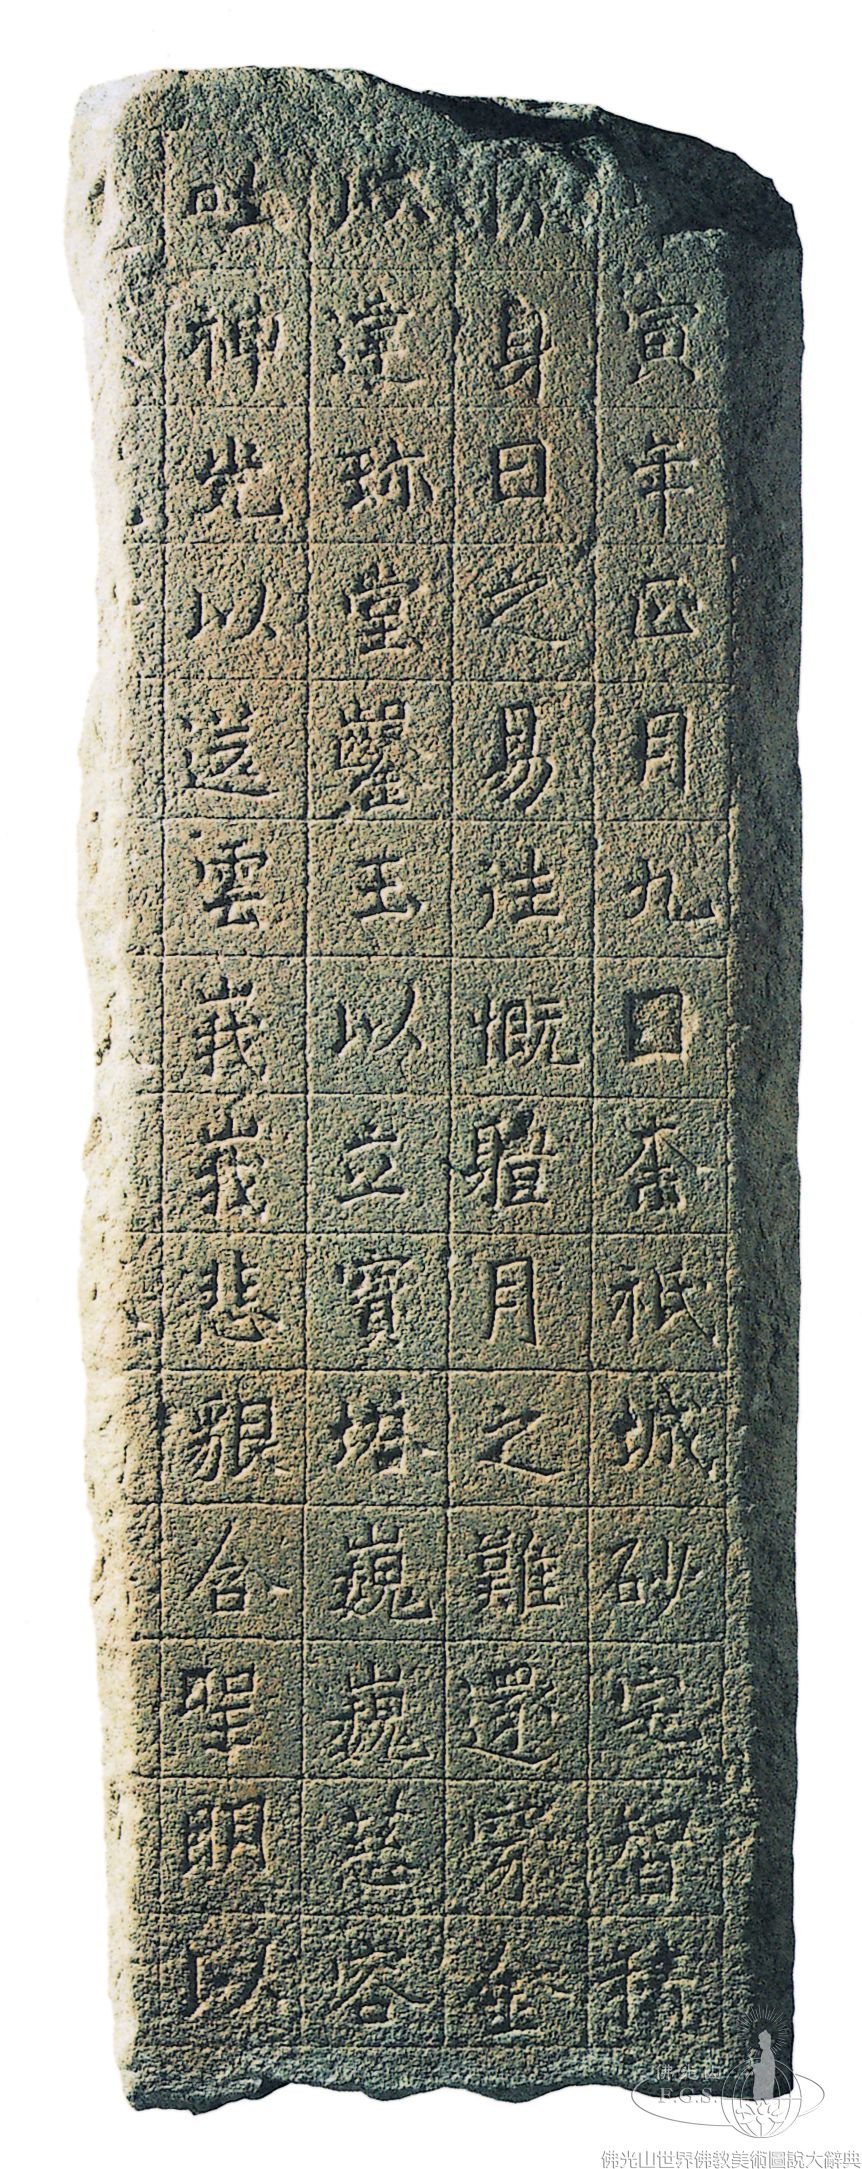 寅年正月九日奈祇城砂宅智積
身日之易往慨體月之難還穿金
以建珍堂鑿玉以立寶塔巍巍慈容
吐神光以送雲峩峩悲貌含聖明以
佛光山
F.G.S.
佛光山世界佛教美術圖說大辭典